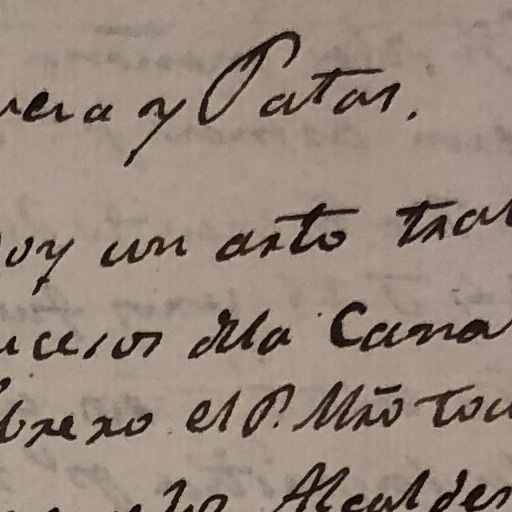 vera y Patas.
doy un asto trat
ucesos dela Cama
brexo el P. Mr̃o toc
los Alcaldes